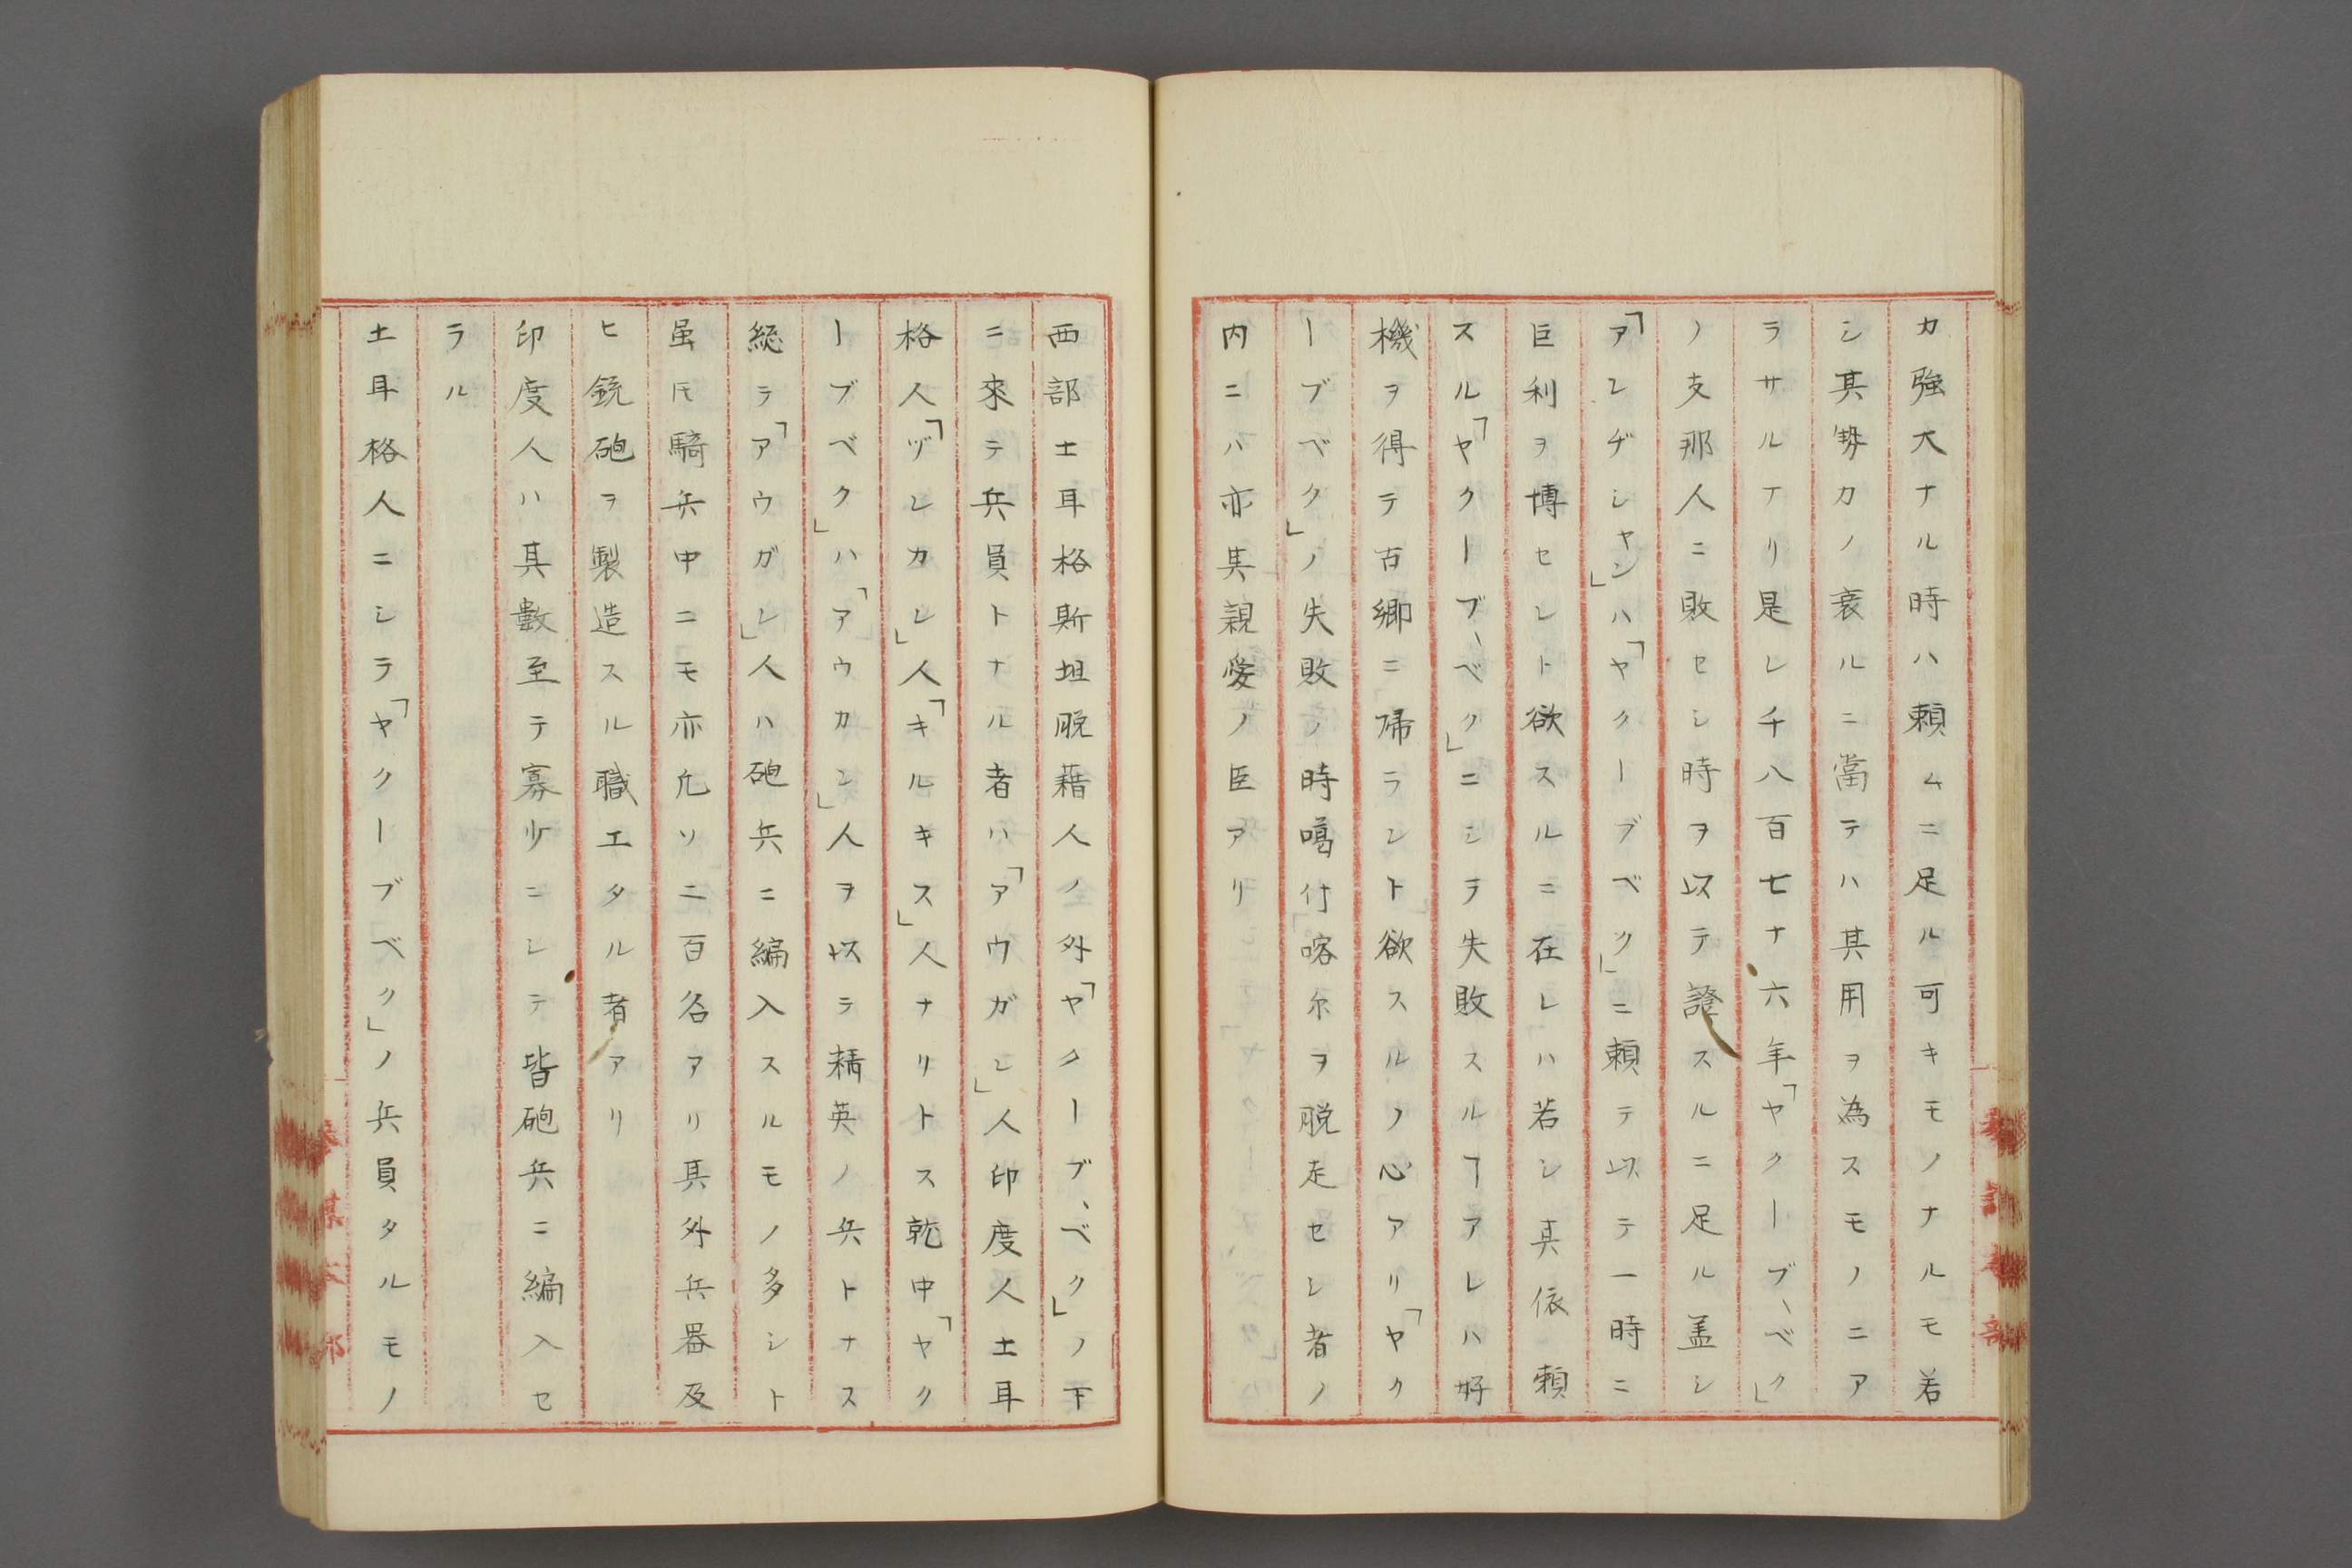 カ強大ナル時ハ頼ムニ足ル可キモノナルモ若
シ其勢力ノ衰ルニ當テハ其用ヲ為スモノニア
ラサルナリ是レ千八百七十六年「ヤクーブ、ベク」
ノ支那人ニ敗セシ時ヲ以テ證スルニ足ル盖シ
「アンヂシャン」ハ「ヤクーブベク」ニ頼テ以テ一時ニ
巨利ヲ博セント欲スルニ在レハ若シ其依頼
スル「ヤクーブ、ベク」ニシテ失敗スルヿアレハ好
機ヲ得テ古郷ニ帰ラント欲スルノ心アリ「ヤク
ーブベク」ノ失敗ノ時噶什喀尔ヲ脱走セシ者ノ
内ニハ亦其親愛ノ臣アリ
西部土耳格斯坦脱籍人ノ外「ヤクーブ、ベク」ノ下
ニ來テ兵員トナル者ハ「アウガン」人印度人土耳
格人「ヅンカン」人「キルキス」人ナリトス乾中「ヤク
ーブベク」ハ「アウカン」人ヲ以テ精英ノ兵トナス
総テ「アウガン」人ハ砲兵ニ編入スルモノ多シト
虽モ騎兵中ニモ亦凢ソ二百名アリ其外兵器及
ヒ銃砲ヲ製造スル職工タル者アリ
印度人ハ其數至テ寡少ニシテ皆砲兵ニ編入セ
ラル
土耳格人ニシテ「ヤクーブベク」ノ兵員タルモノ